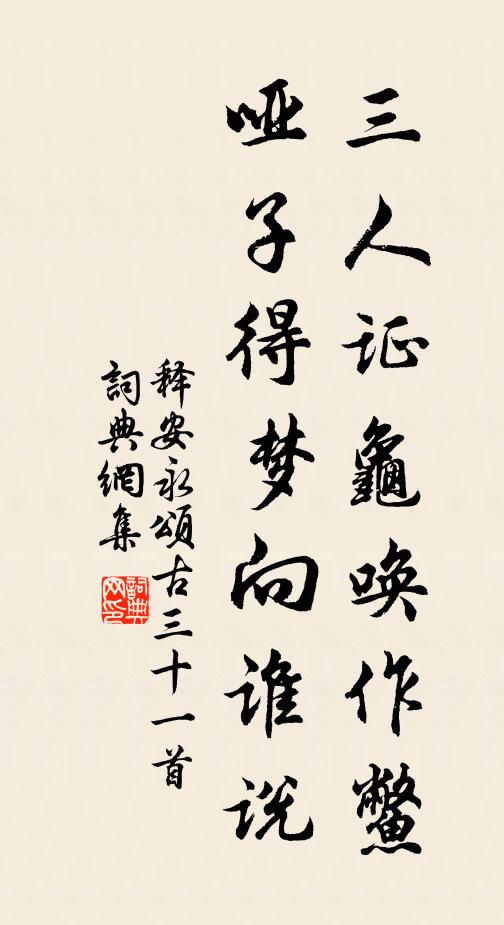 三人证龜唤作鱉
哑子得梦向谁说
释安永頌古三十一首
詞典網集
詞典网印